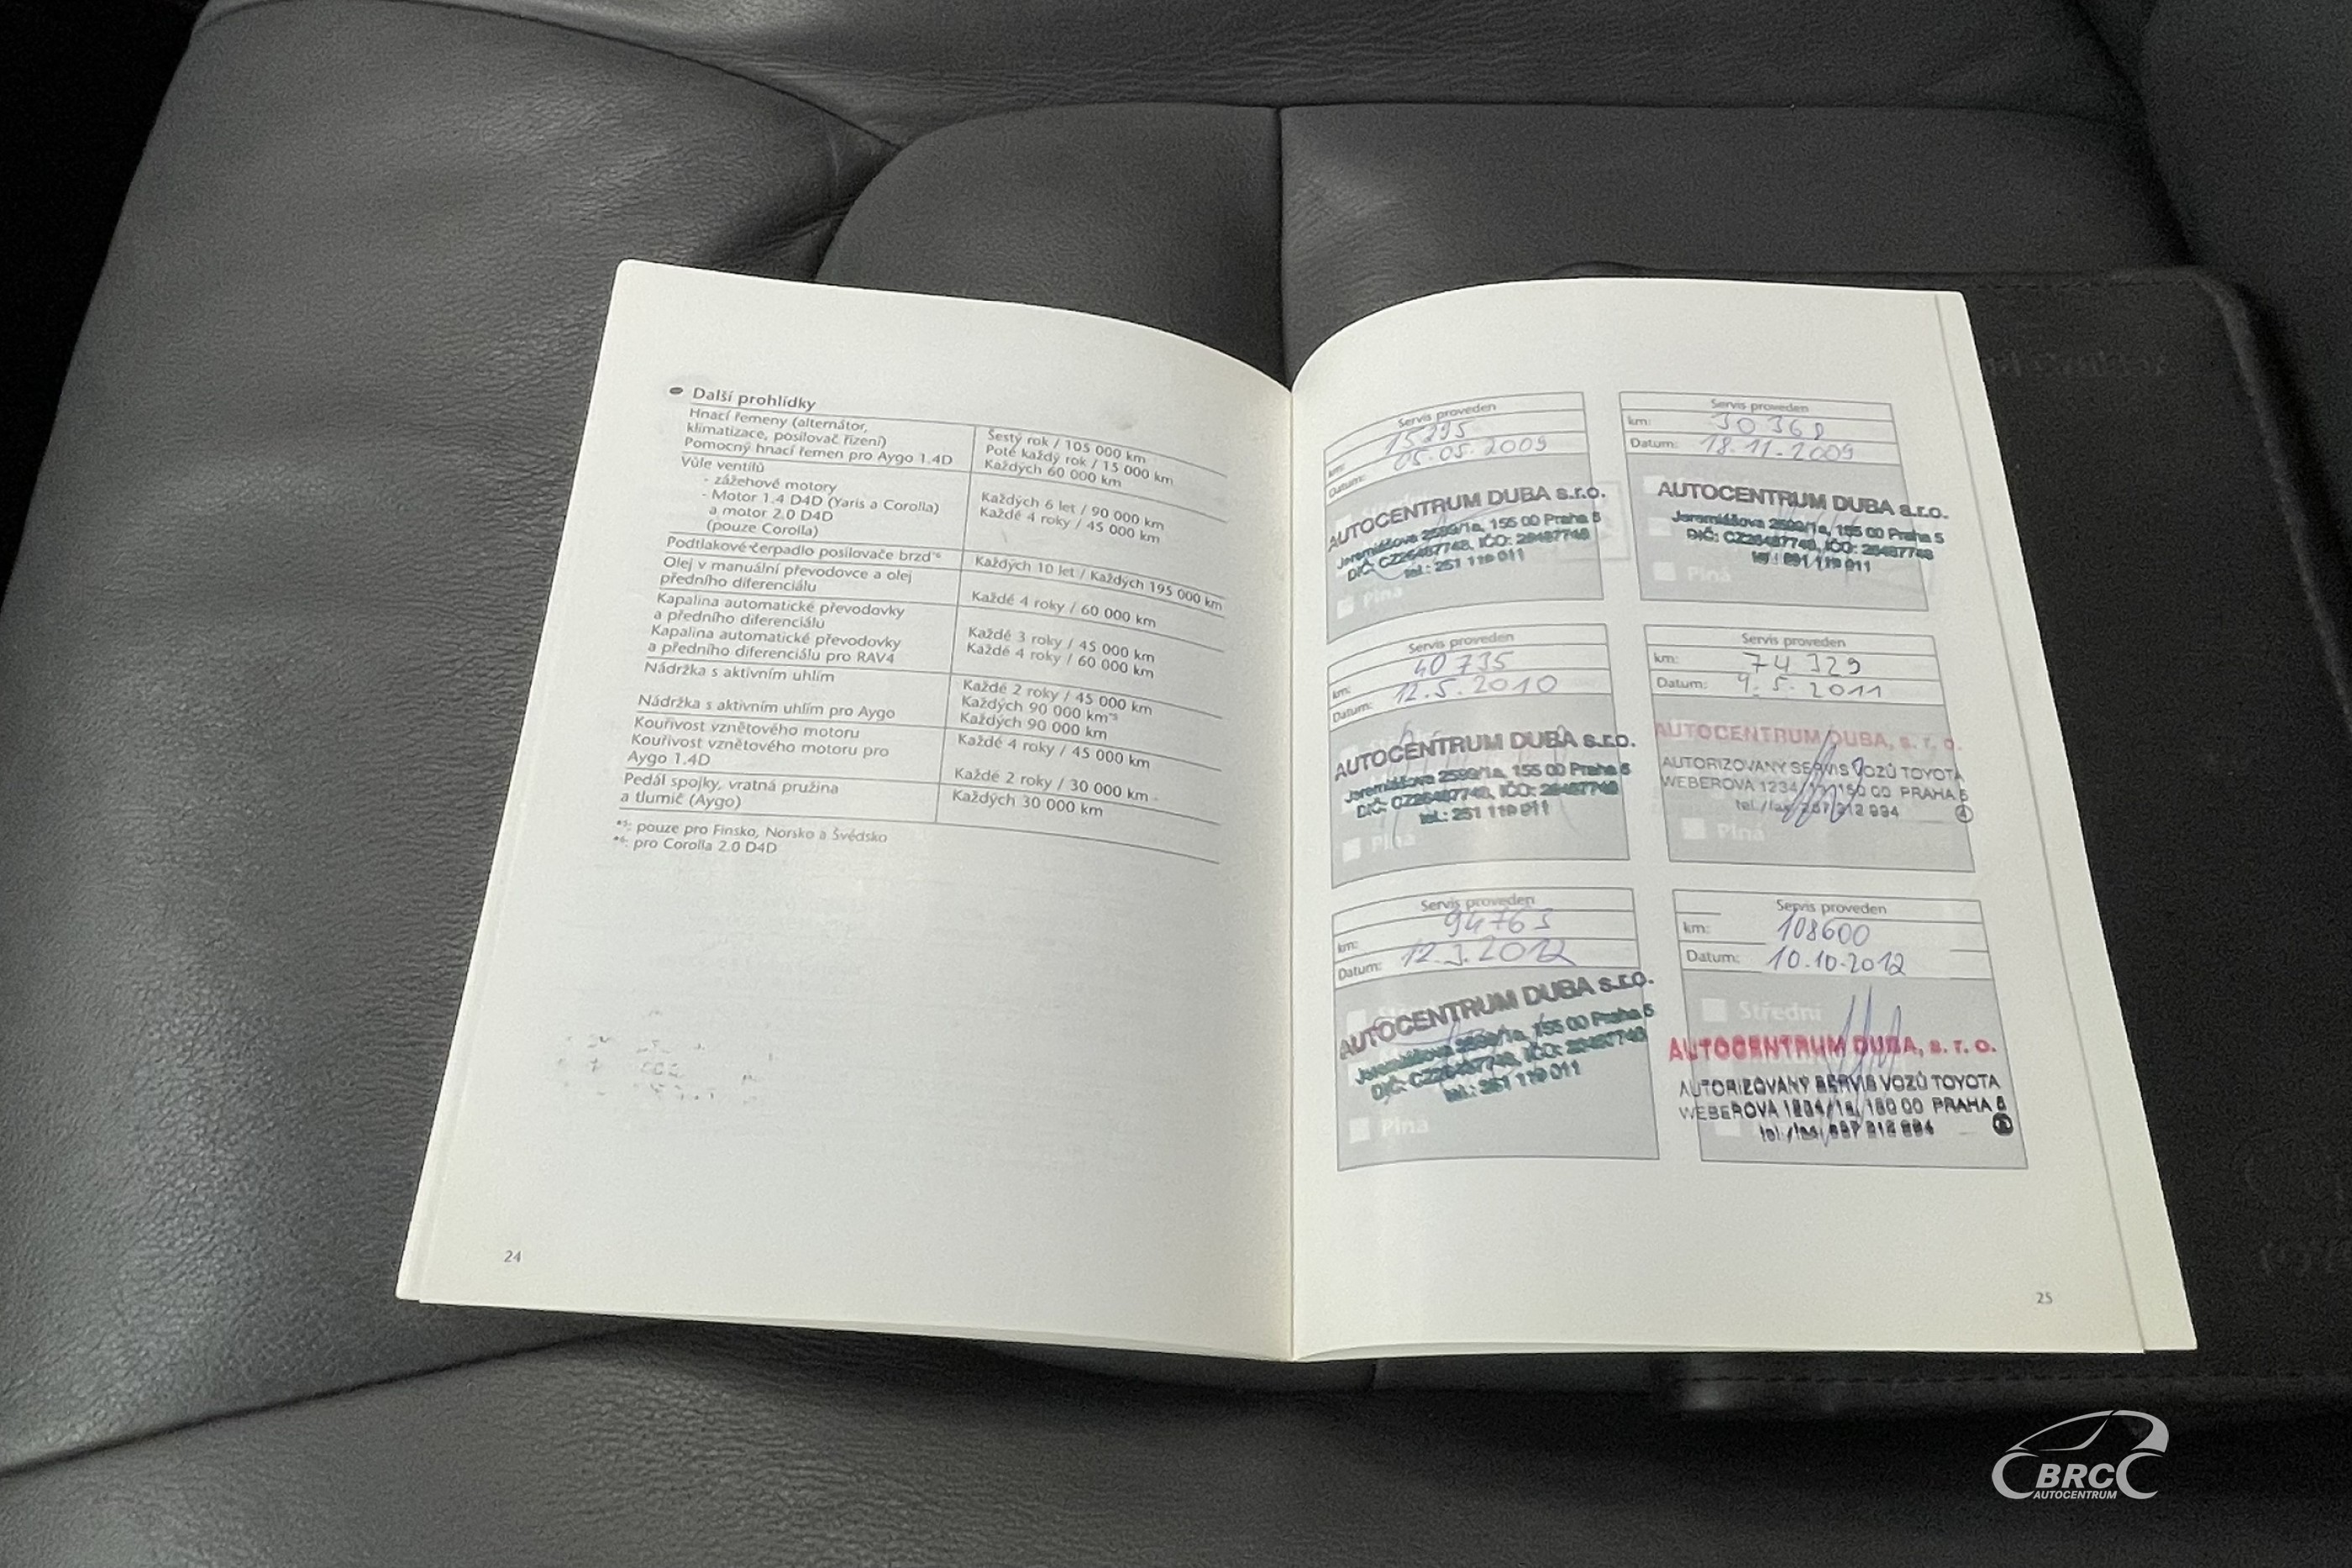 Další prohlídky
Hnací řemeny (alternátor,
klimatizace, posilovač řízení)
Šestý rok / 105 000 km
Poté každý rok / 15 000 km
Pomocný hnací řemen pro Aygo 1.4D
Každých 60 000 km
Vůle ventilů
- zážehové motory
Každých 6 let / 90 000 km
- Motor 1.4 D4D (Yaris a Corolla)
a motor 2.0 D4D
(pouze Corolla)
Každé 4 roky / 45 000 km
Podtlakové čerpadlo posilovače brzd*⁶
Každých 10 let / Každých 195 000 km
Olej v manuální převodovce a olej
předního diferenciálu
Každé 4 roky / 60 000 km
Kapalina automatické převodovky
a předního diferenciálu
Každé 3 roky / 45 000 km
Kapalina automatické převodovky
a předního diferenciálu pro RAV4
Každé 4 roky / 60 000 km
Nádržka s aktivním uhlím
Každé 2 roky / 45 000 km
Každých 90 000 km*⁵
Nádržka s aktivním uhlím pro Aygo
Každých 90 000 km
Kouřivost vznětového motoru
Každé 4 roky / 45 000 km
Kouřivost vznětového motoru pro
Aygo 1.4D
Každé 2 roky / 30 000 km
Pedál spojky, vratná pružina
a tlumič (Aygo)
Každých 30 000 km
*⁵: pouze pro Finsko, Norsko a Švédsko
*⁶: pro Corolla 2.0 D4D
24
Servis proveden
km: 15295
Datum: 05.05.2009
AUTOCENTRUM DUBA s.r.o.
Jeremiášova 2599/1a, 155 00 Praha 5
DIČ: CZ26487748, IČO: 26487748
tel.: 251 119 011
Plná
Servis proveden
km: 30368
Datum: 18.11.2009
AUTOCENTRUM DUBA s.r.o.
Jeremiášova 2599/1a, 155 00 Praha 5
DIČ: CZ26487748, IČO: 26487748
Plná
Servis proveden
km: 40735
Datum: 12.5.2010
AUTOCENTRUM DUBA s.r.o.
Jeremiášova 2599/1a, 155 00 Praha 5
DIČ: CZ26487748, IČO: 26487748
tel.: 251 119 011
Plná
Servis proveden
km: 74329
Datum: 9.5.2011
AUTOCENTRUM DUBA, s. r. o.
AUTORIZOVANÝ SERVIS VOZŮ TOYOTA
WEBEROVA 1234/1a, 150 00 PRAHA 5
tel./fax: 257 212 994
Plná
Servis proveden
km: 94763
Datum: 12.3.2012
AUTOCENTRUM DUBA s.r.o.
Jeremiášova 2599/1a, 155 00 Praha 5
DIČ: CZ26487748, IČO: 26487748
tel.: 251 119 011
Plná
Servis proveden
km: 108600
Datum: 10.10.2012
Střední
AUTOCENTRUM DUBA, s. r. o.
AUTORIZOVANÝ SERVIS VOZŮ TOYOTA
WEBEROVA 1234/1a, 150 00 PRAHA 5
25
BRC
AUTOCENTRUM